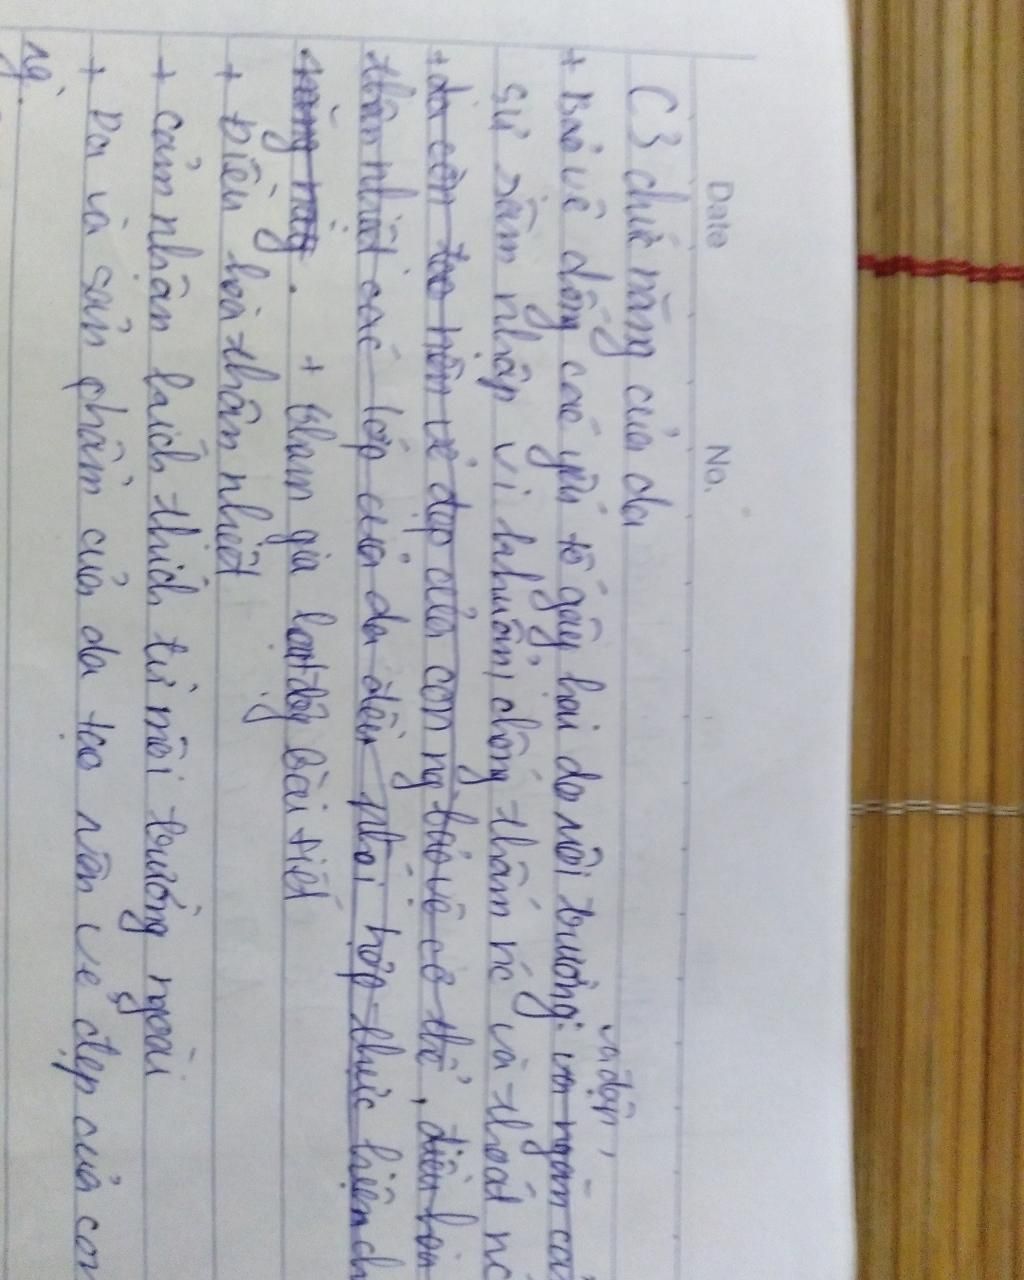 Date No.
C3 chức năng của da
+ Bảo vệ dống các yếu tố gây hại do môi trường: va đập, ngăn
sự xâm nhập vi khuẩn, chống thấm nc và thoát nc
+ da còn tạo nên vẻ đẹp của con ng bảo vệ cơ thể, điều hòa
thân nhiệt các lớp của da đều phối hợp thực hiện ch
năng này. + tham gia hoạt động bài tiết
+ Điều hoà thân nhiệt
+ cảm nhận kích thích từ môi trường ngoài
+ Da và sản phẩm của da tạo nên vẻ đẹp của con
ng.